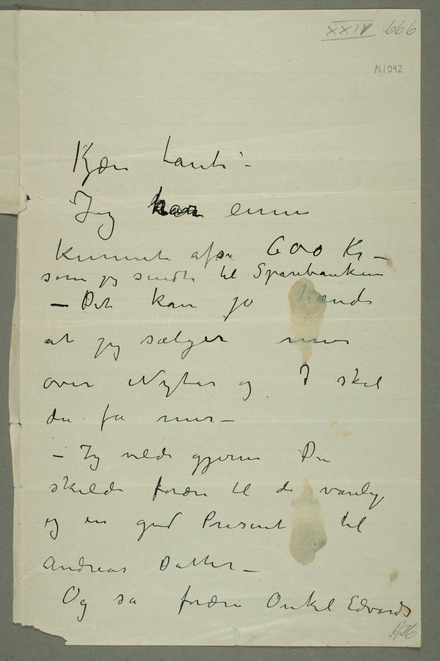 XXIV 666
N1042
Kjære Tante!–
Jeg har
kunnet 600 Kr–
som jeg sendte til Sparebanken
– Det kan jo hænde
at jeg sælger mer
over Nytår og I skal
da få mer –
– Jeg vilde gjerne Du
skulde til de vanlige
og en god Present til
Andreas Datter –
Og så Onkel Edvards